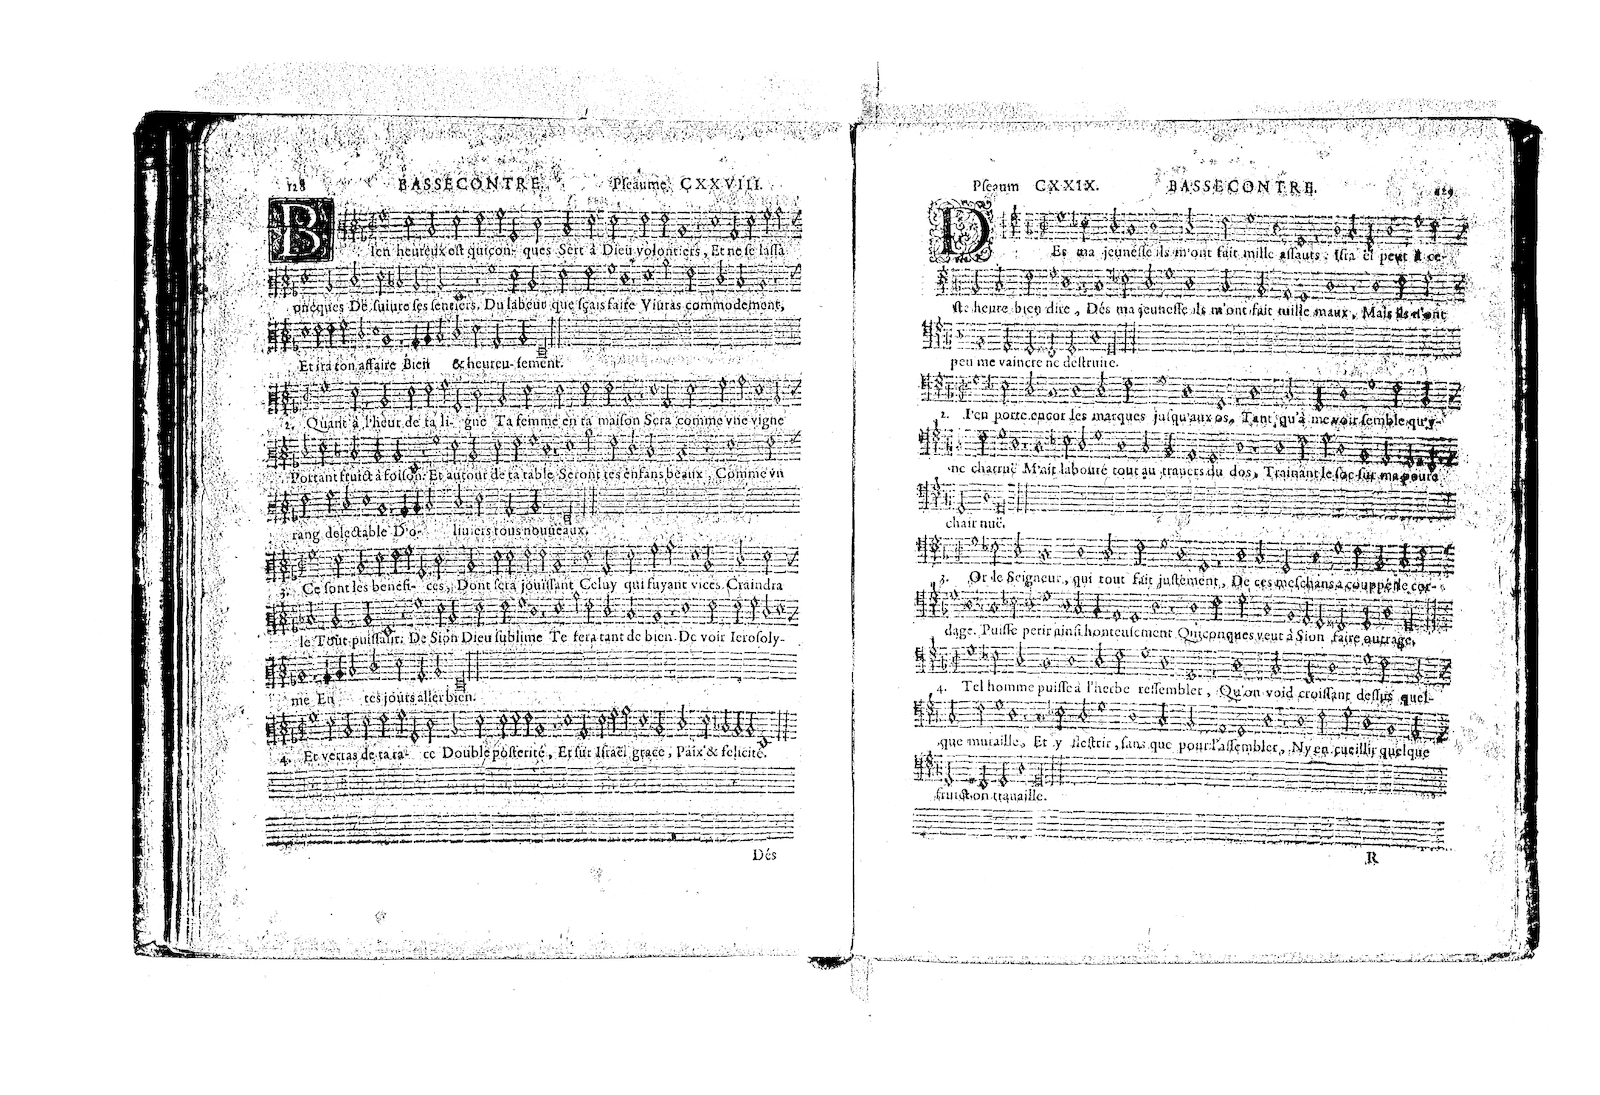 128 BASSECONTRE. Pseaume CXXVIII.
BIen heureux est quiçon- ques Sert à Dieu volontiers, Et ne se lassa
oncques De suiure ses sentiers. Du labeur que sçais faire Viuras commodement,
Et ira ton affaire Bien & heureu-sement.
2. Quant à l'heur de ta li- gne Ta femme en ta maison Sera comme vne vigne
Portant fruict à foison. Et autour de ta table Seront tes enfans beaux, Comme vn
rang delectable D'o- liuiers tous nouueaux.
3. Ce sont les benefi- ces, Dont sera jouissant Celuy qui fuyant vices Craindra
le Tout-puissant: De Sion Dieu sublime Te fera tant de bien. De voir Ierosoly-
me En tes jours aller bien.
4. Et verras de ta ra- ce Double posterité, Et sur Israël grace, Paix & felicité.
Dés
Pseaum CXXIX. BASSECONTRE. 129
DEs ma jeunesse ils m'ont fait mille assauts, Israel peut à ce-
ste heure bien dire, Dés ma jeunesse ils m'ont fait mille maux, Mais ils n'ont
peu me vaincre ne destruire.
2. I'en porte encor les marques jusqu'aux os, Tant qu'à me voir semble qu'v-
ne charruë M'ait labouré tout au trauers du dos, Trainant le soc sur ma poure
chair nuë.
3. Or le Seigneur, qui tout fait justement, De ces meschans a couppé le cor-
dage. Puisse perir ainsi honteusement Quiconques veut à Sion faire outrage.
4. Tel homme puisse à l'herbe ressembler, Qu'on void croissant dessus quel-
que muraille, Et y flestrir, sans que pour l'assembler, N'y en cueillir quelque
fruict on trauaille.
R